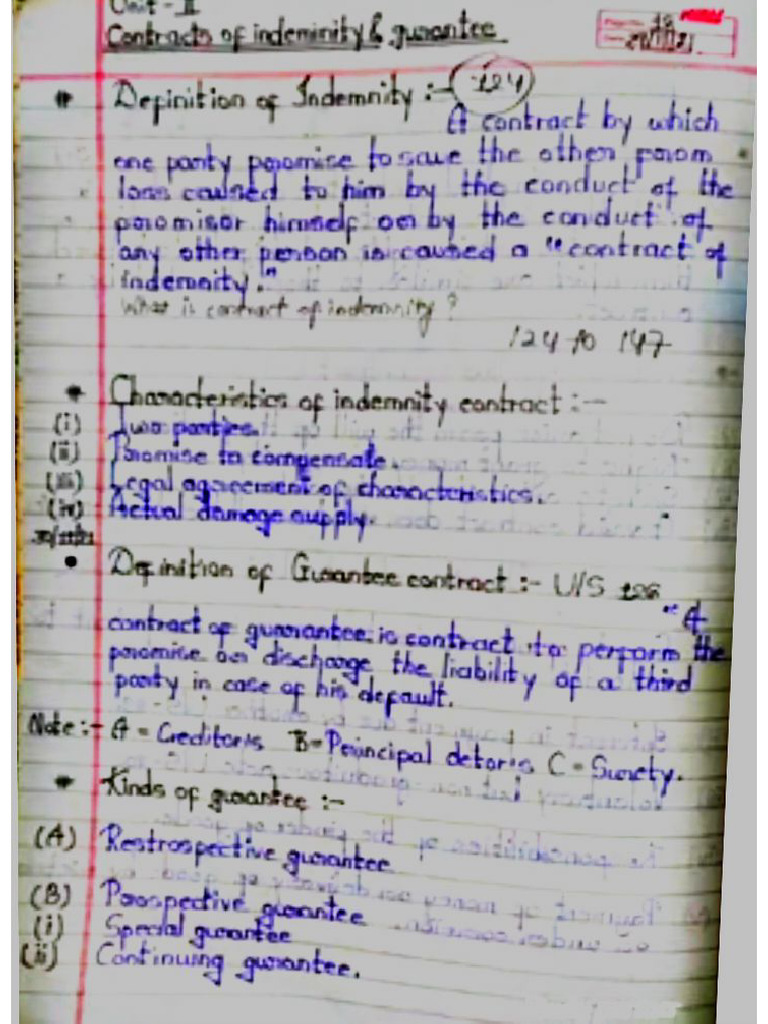 Unit - II
Contracts of indeminity & gurantee
Definition of Indemnity :- 124
A contract by which
one party promise to save the other from
loss caused to him by the conduct of the
promisor himself or by the conduct of
any other person is caused a "contract of
indemnity."
What is contract of indemnity?
124 to 147
Characteristics of indemnity contract :-
(i) Two parties.
(ii) Promise to compensate.
(iii) Legal agreement of characteristics.
(iv) Actual damage supply.
Definition of Gurantee contract :- U/S 126
"A
contract of guarantee is contract to perform the
promise or discharge the liability of a third
party in case of his default.
Note :- A = Creditor's B = Principal detor's C = Surety.
Kinds of gurantee :-
(A) Restrospective gurantee
(B) Prospective gurantee
(i) Special gurantee
(ii) Continuing gurantee.